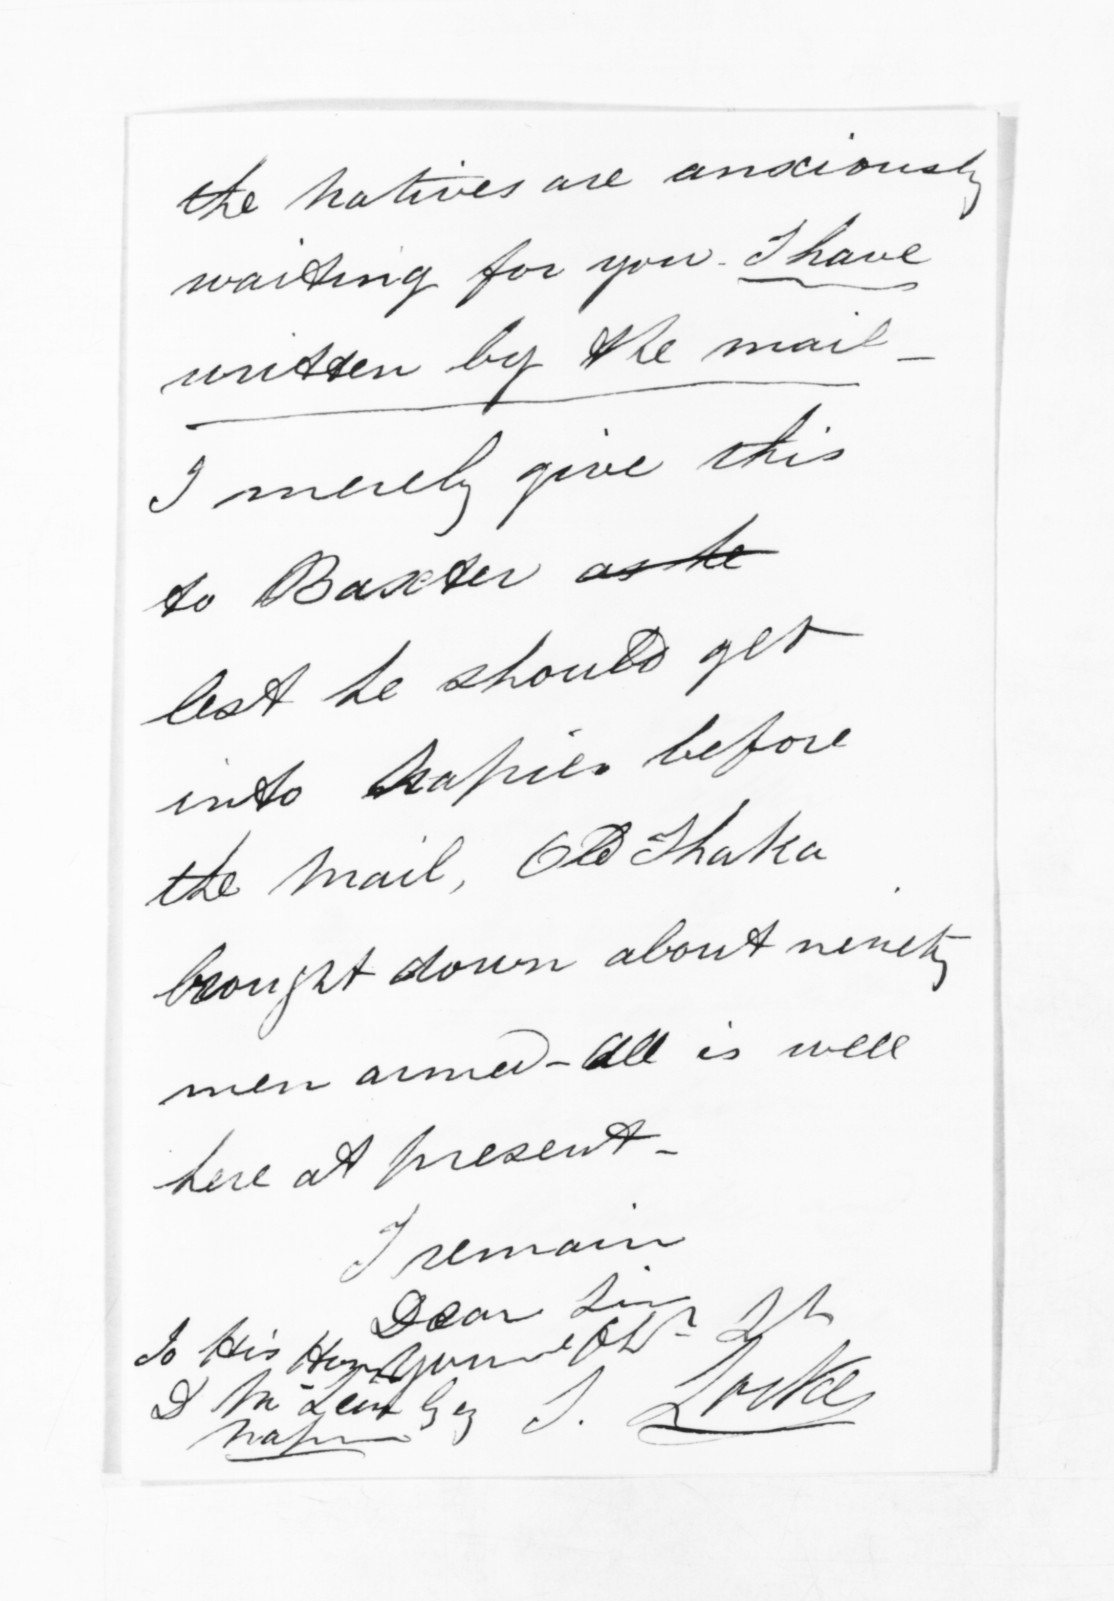 the Natives are anxiously
waiting for you - I have
written by the mail -
I merely give this
to Baxter as he
lest he should get
into Napier before
the Mail, Old Ihaka
brought down about ninety
men armed - All is well
here at present -
I remain
Dear Sir
Your
S. Locke
To His Honor
D McLean Esq
Napier